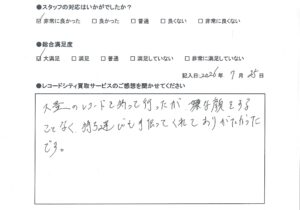 ●スタッフの対応はいかがでしたか?
☑非常に良かった □良かった □普通 □良くない □非常に良くない
●総合満足度
☑大満足 □満足 □普通 □満足していない □非常に満足していない
記入日 2026 年 7 月 25 日
●レコードシティ買取サービスのご感想を聞かせてください
大量のレコードを持って行ったが 嫌な顔をする
ことなく 持ち運びも手伝ってくれてありがたかった
です。